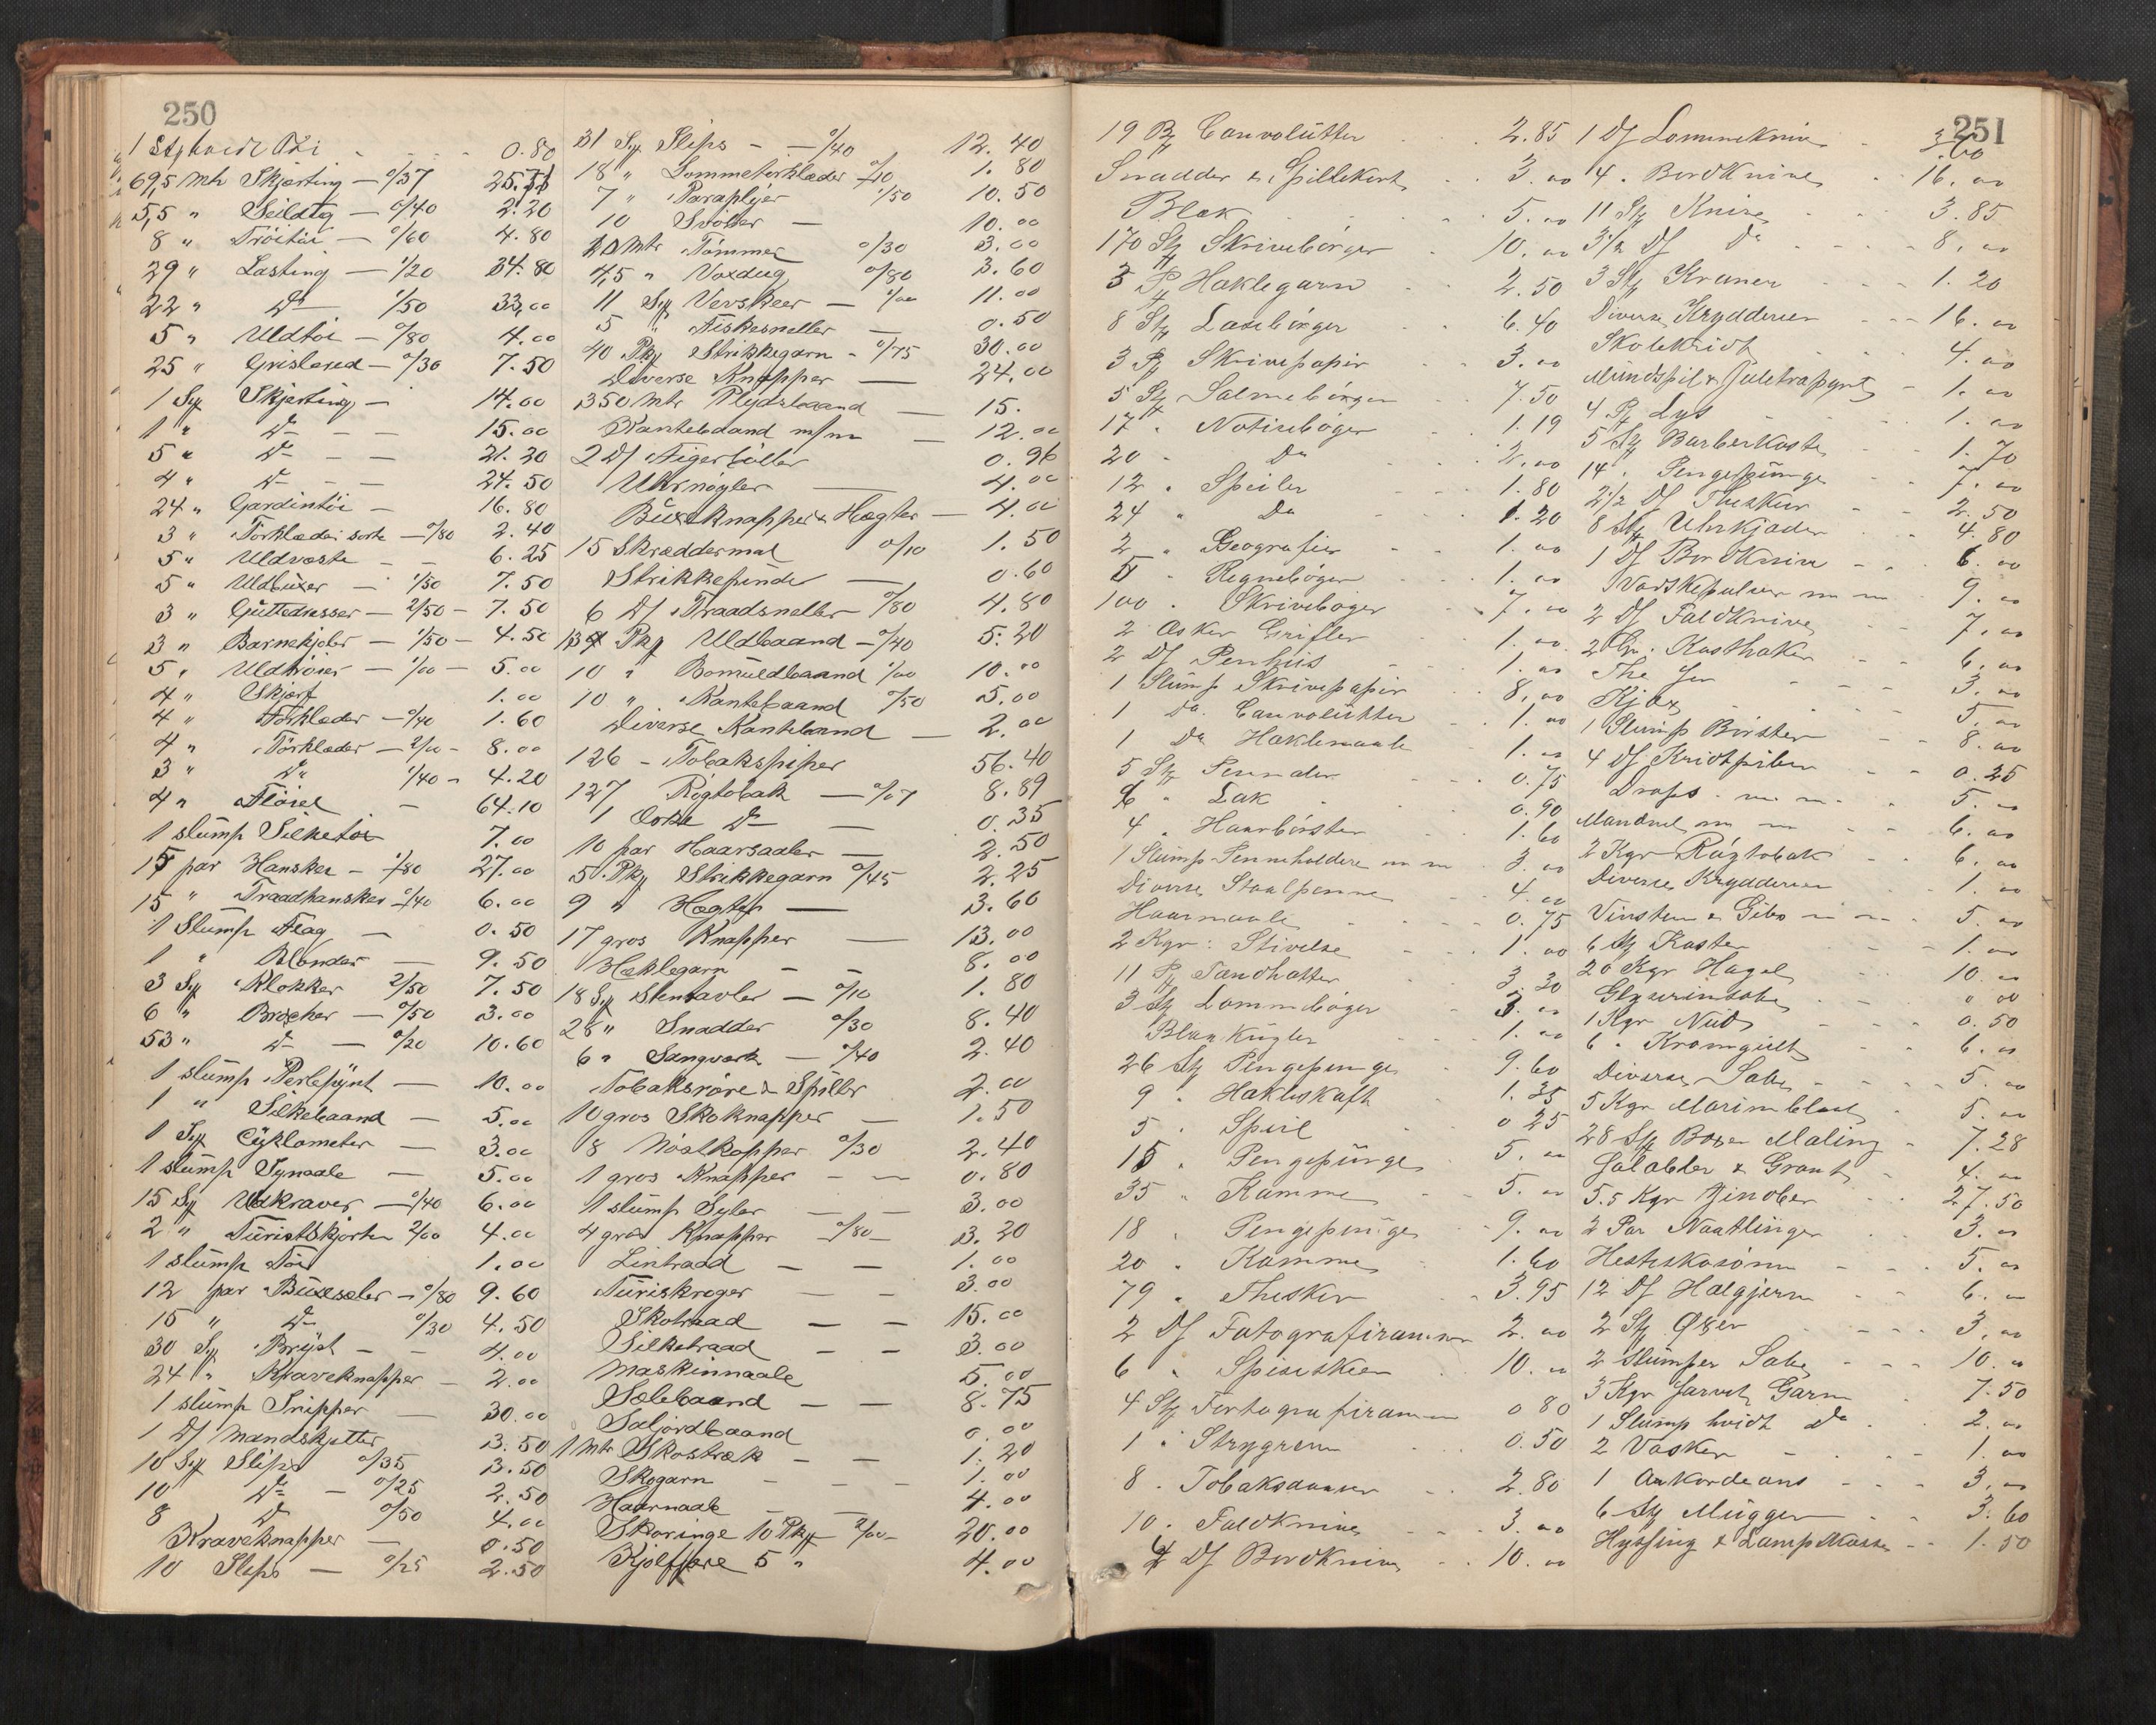 250
1 Sty hvidt Tøi - - - 0.80
69,5 Mtr Skjorting — 0/37 25.71
5,5 " Seildug — 0/40 2.20
8 " Tröitöi — 0/60 4.80
29 " Lasting — 1/20 34.80
22 " Do 1/50 33,00
5 " Uldtöi — 0/80 4.00
25 " Grislered — 0/30 7.50
1 Sty Skjorting — 14.00
1 " Do - - 15.00
5 " Do - - 21.20
4 " Do - - 24.50
24 " Gardintöi — 16.80
3 " Törklæder sorte — 0/80 2.40
5 " Uldveste - - 6.25
5 " Uldbuxer — 1/50 7.50
3 " Guttedresser — 2/50 - 7.50
3 " Barnekjoler — 1/50 - 4.50
5 " Uldtröier — 1/00 - 5.00
4 " Skjærf 1.00
4 " Forklæder — 0/40 1.60
4 " Törklæder — 2/00 - 8.00
3 " Do 1/40 - 4.20
4 " Flöiel - 64.10
1 slump Silketöi 7.00
15 par Hansker - 1/80 27.00
15 " Traadhansker 0/40 6.00
1 Slump Flag — 0.50
1 " Blonder — 9.50
3 Sty Klokker 2/50 7.50
6 " Brocher — 0/50 3.00
53 " Do — 0/20 10.60
1 slump Perlepynt — 10.00
1 " Silkebaand — 5.00
1 Sty Cyklometer — 3.00
1 slump Synaale — 5.00
15 Sty Uldkraver — 0/40 6.00
2 " Turistskjorter 2/00 4.00
1 slump Töi 1.00
12 par Buxeseler — 0/80 9.60
15 " Do 0/30 4.50
30 Sty Bryst - - 4.00
24 " Kraveknapper — 2.00
1 slump Snipper — 30.00
1 Df Mandskjetter 3.50
10 Sty Slips 0/35 3.50
10 Do — 0/25 2.50
8 Do 0/50 4.00
Kraveknapper — 0.50
10 Slips — 0/25 2.50
31 Sty Slips - — 0/40 12.40
18 " Lommetörklæder 0/10 1.80
7 " Paraplyer 1/50 10.50
10 Svöber — 10.00
10 Mtr Tömmer 0/30 3.00
4,5 " Voxdug 0/80 3.60
11 Sty Verskeer — 1/00 11.00
5 " Fiskesneller — 0.50
40 Pky Strikkegarn - 0/75 30.00
Diverse Knapper — 24.00
350 Mtr Plydsbaand — 15.
Kantebaand m/m — 12.00
2 Df Figerböller 0.96
Uhrnögler — 4.00
Buxeknapper & Hægter — 4.00
15 Skræddermal 0/10 1.50
Strikkepinde — 0.60
6 Df Traadsneller - 0/80 4.80
13 Pky Uldbaand — 0/40 5.20
10 " Bomuldbaand 1/00 10.00
10 " Kantebaand 0/50 5.00
Diverse Kantebaand — 2.00
126 - Tobakspiper 56.40
127 Rögtobak — 0/07 8.89
1 Do — 0.35
10 par Haarsaaler — 2.50
5 Pky Strikkegarn 0/45 2.25
9 " Hægter — 3.60
17 gros Knapper — 13.00
Heklegarn - - 8.00
18 Sty Stentavler — 0/10 1.80
28 " Snadder 0/30 8.40
6 " Sangværk — 0/40 2.40
Tobaksröre & Spidser 2.00
10 gros Skoknapper — 1.50
8 Nöstkopper 0/30 2.40
1 gros Knapper - - 0.80
1 slump Syler - - 3.00
4 gros Knapper - 0/80 - 3.20
Lintraad - - 1.00
Turiskroger - - 3.00
Skotraad - - 15.00
Silketraad - - 3.00
Maskinnaale 5.00
Sælebaand - - 8.75
Saljordbaand 0.00
1 Mtr Skostræk - - 1.20
Skogarn - - 1.00
Haarnaale - - 4.00
Skoringe 10 Pky 2/00 - 20.00
Kjolfjere 5 " 4.00
251
19 Pk Convolutter 2.85
Snadder & Spillekort 3.00
Blæk 5.00
170 Stk Skrivebörger 10.00
3 Pk Haklegarn 2.50
8 Stk Læsebörger 6.40
3 Pk Skrivepapir 3.00
5 Stk Salmebörger 7.50
17 " Notisebøger 1.19
20 " Do 2.00
12 " Speiler 1.80
24 " Do 1.20
2 " Geografier 1.00
5 " Regnebøger 1.00
100 " Skrivebøger 7.00
2 Æsker Grifler 1.00
2 Df Penhus 1.00
1 Slump Skrivepapir 8.00
1 Do Convolutter 1.00
1 Do Haklenaale 1.00
5 Stk Penaler 0.75
6 " Lak 0.90
4 " Haarbørster 1.60
1 Slump Penneholdere m m 3.00
Diverse Staalpenne 4.00
Haarnaale 0.75
2 Kgr: Stivelse 1.00
11 Pk Tandhatter 3.30
3 Stk Lommebøger 3.00
Blaa Kugler 1.00
26 Stk Pengepunge 9.60
9 " Hakleskaft 1.35
5 " Speil 0 25
15 " Pengepunge 5.00
35 " Kamme 5.00
18 " Pengepunge 9.00
20 " Kamme 1.60
79 " Theskeer 3.95
2 Df Fotografirammer 2.00
6 " Spiseskeer 10.00
4 Stk Fortografirammer 0 80
1 " Strygrem 0.50
8 " Tobaksdaaser 2.80
10 " Foldknive 3.00
4 Df Bordknive 10.00
1 Df Lommeknive 3.60
4 " Bordknive 16.00
11 Stk Knive 3.85
3 1/2 Df Do 8.00
3 Stk Kraner 1.20
Diverse Krydderier 16.00
Skolekridt 4.00
Mundspil & Juletrapynt 1.00
4 Pk Lys 1.00
5 Stk Barberkoste 1.70
14 " Pengepunge 7.00
2 1/2 Df Theskeer 2.50
8 Stk Uhrkjæder 4.80
1 Df Bordknive 6.00
Vaskepulver m m 9.00
2 Df Foldknive 7.00
2 Gr. Kasthaker 6.00
The 3.00
Kjæx 5.00
1 Slump Börster 8.00
4 Df Kridtpiber 0.25
Drops m m 5.00
Mandvel m m 6.00
2 Kgr Røgtobak 6.00
Diverse Krydderier 1.00
Vinsten & Gibs 5.00
6 Stk Koster 1.00
20 Kgr Hagel 10.00
Glyserinsabe 0 00
1 Kgr Nud 0.50
6 " Kromgult 6.00
Diverse Sabe 5.00
5 Kgr Marineblaat 5.00
28 Stk Boxer Maling 7.28
Salabler & Grant 4.00
5.5 Kgr Zinober 27.50
2 Par Naatlinger 3.00
Hesteskosöm 5.00
12 Df Hælgjern 6.00
2 Stk Øxer 3.00
2 Slumper Sabe 10.00
3 Kgr farvet Garn 7.50
1 Slump hvidt Do 2.00
2 Vasker 1.00
1 Ankordeans 3.00
6 Stk Mugger 3.60
Hyssing & Lampeklasse 1.50